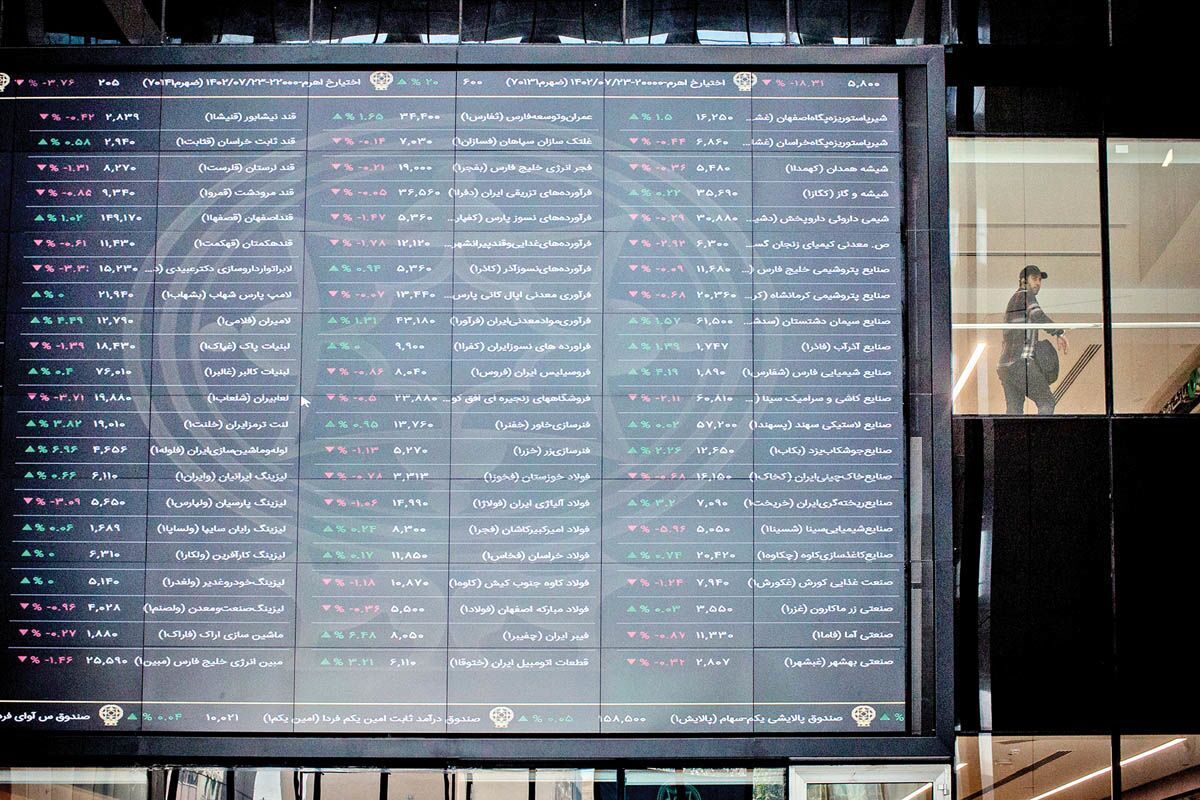 ۵,۸۰۰ ▼ % -۱۸.۳۱ اختیارخ اهرم-۲۰۰۰۰-۱۴۰۲/۰۷/۲۳ (ضهرم۷۰۱۳۱) ۶۰۰ ▲ % ۲۰ اختیارخ اهرم-۲۲۰۰۰-۱۴۰۲/۰۷/۲۳ (ضهرم۷۰۱۴۱) ۲۰۵ ▼ % -۳.۷۶
شیرپاستوریزه‌پگاه‌اصفهان (غشـ... ۱۶,۲۵۰ ▲ % ۱.۵ عمران‌وتوسعه‌فارس (ثفارس۱) ۳۴,۴۰۰ ▲ % ۱.۶۵ قند نیشابور (قنیشا۱) ۲,۸۳۹ ▼ % -۰.۴۲
شیرپاستوریزه‌پگاه‌خراسان (غشا... ۶,۸۶۰ ▼ % -۰.۴۴ غلتک سازان سپاهان (فسازان۱) ۷,۰۳۰ ▼ % -۰.۱۴ قند ثابت خراسان (قثابت۱) ۲,۹۴۰ ▲ % ۰.۵۸
شیشه همدان (کهمدا۱) ۵,۴۸۰ ▼ % -۰.۳۶ فجر انرژی خلیج فارس (بفجر۱) ۱۹,۰۰۰ ▼ % -۰.۲۱ قند لرستان (قلرست۱) ۸,۲۷۰ ▼ % -۱.۳۱
شیشه و گاز (کگاز۱) ۳۵,۶۹۰ ▲ % ۰.۲۲ فرآورده‌های تزریقی ایران (دفرا۱) ۳۶,۵۶۰ ▼ % -۰.۰۵ قند مرودشت (قمرو۱) ۹,۳۴۰ ▼ % -۰.۸۵
شیمی داروئی داروپخش (دشیـ... ۳۰,۸۸۰ ▼ % -۰.۲۹ فرآورده‌های نسوز پارس (کفپار... ۵,۳۶۰ ▼ % -۱.۴۷ قنداصفهان (قصفها۱) ۱۴۹,۱۷۰ ▲ % ۱.۰۲
ص. معدنی کیمیای زنجان گسـ... ۶,۳۰۰ ▼ % -۲.۹۲ فرآورده‌های‌غذایی‌وقندپیرانشهر... ۱۲,۱۲۰ ▼ % -۱.۷۸ قندهکمتان (قهکمت۱) ۱۱,۴۳۰ ▼ % -۰.۶۱
صنایع پتروشیمی خلیج فارس (... ۱۱,۶۸۰ ▼ % -۰.۰۹ فرآورده‌های‌نسوزآذر (کاذر۱) ۵,۳۶۰ ▲ % ۰.۹۴ لابراتوارداروسازی دکترعبیدی (د... ۱۵,۲۳۰ ▼
صنایع پتروشیمی کرمانشاه (کر... ۲۰,۳۶۰ ▼ % -۰.۶۸ فرآوری معدنی اپال کانی پارس... ۱۳,۴۴۰ ▼ % -۰.۰۷ لامپ پارس شهاب (بشهاب۱) ۲۱,۹۴۰ ▲ % ۰
صنایع سیمان دشتستان (سدشـ... ۶۱,۵۰۰ ▲ % ۱.۵۷ فرآوری‌موادمعدنی‌ایران (فرآور۱) ۴۳,۱۸۰ ▲ % ۱.۳۱ لامیران (فلامی۱) ۱۲,۷۹۰ ▲ % ۴.۴۹
صنایع آذرآب (فاذر۱) ۱,۷۴۷ ▲ % ۱.۳۹ فراورده های نسوزایران (کفرا۱) ۹,۹۰۰ ▲ % ۰ لبنیات پاک (غپاک۱) ۱۸,۴۳۰ ▼ % -۱.۳۹
صنایع شیمیایی فارس (شفارس۱) ۱,۸۹۰ ▲ % ۴.۱۹ فروسیلیس ایران (فروس۱) ۸,۰۴۰ ▼ % -۰.۸۶ لبنیات کالبر (غالبر۱) ۷۶,۰۱۰ ▲ % ۰.۴
صنایع کاشی و سرامیک سینا (... ۶۰,۸۱۰ ▼ % -۲.۱۱ فروشگاههای زنجیره ای افق کو... ۲۳,۸۸۰ ▼ % -۰.۵ لعابیران (شلعاب۱) ۱۹,۸۸۰ ▼ % -۳.۷۱
صنایع لاستیکی سهند (پسهند۱) ۵۷,۲۰۰ ▲ % ۰.۰۲ فنرسازی‌خاور (خفنر۱) ۱۳,۷۶۰ ▲ % ۰.۹۵ لنت ترمزایران (خلنت۱) ۱۹,۰۱۰ ▲ % ۳.۸۲
صنایع‌جوشکاب‌یزد (بکاب۱) ۱۲,۶۵۰ ▲ % ۲.۲۶ فنرسازی‌زر (خزر۱) ۵,۲۷۰ ▼ % -۱.۱۳ لوله‌وماشین‌سازی‌ایران (فلوله۱) ۴,۶۵۶ ▲ % ۶.۹۶
صنایع‌خاک‌چینی‌ایران (کخاک۱) ۱۶,۱۵۰ ▼ % -۰.۶۸ فولاد خوزستان (فخوز۱) ۳,۳۱۳ ▼ % -۰.۷۸ لیزینگ ایرانیان (ولیران۱) ۶,۱۱۰ ▲ % ۰.۶۶
صنایع‌ریخته‌گری‌ایران (خریخت۱) ۷,۰۹۰ ▲ % ۳.۲ فولاد آلیاژی ایران (فولاژ۱) ۱۴,۹۹۰ ▼ % -۱.۰۶ لیزینگ پارسیان (ولپارس۱) ۵,۶۵۰ ▼ % -۳.۰۹
صنایع‌شیمیایی‌سینا (شسینا۱) ۵,۰۵۰ ▼ % -۵.۹۶ فولاد امیرکبیرکاشان (فجر۱) ۸,۳۰۰ ▲ % ۰.۲۴ لیزینگ رایان سایپا (ولساپا۱) ۱,۶۸۹ ▲ % ۰.۰۶
صنایع‌کاغذسازی‌کاوه (چکاوه۱) ۲۰,۴۲۰ ▲ % ۰.۷۴ فولاد خراسان (فخاس۱) ۱۱,۸۵۰ ▲ % ۰.۱۷ لیزینگ کارآفرین (ولکار۱) ۶,۳۱۰ ▲ % ۰
صنعت غذایی کورش (غکورش۱) ۷,۹۴۰ ▼ % -۱.۲۴ فولاد کاوه جنوب کیش (کاوه۱) ۱۰,۸۷۰ ▼ % -۱.۱۸ لیزینگ‌خودروغدیر (ولغدر۱) ۵,۱۴۰ ▲ % ۰
صنعتی زر ماکارون (غزر۱) ۳,۵۵۰ ▲ % ۰.۰۳ فولاد مبارکه اصفهان (فولاد۱) ۵,۵۰۰ ▼ % -۰.۳۶ لیزینگ‌صنعت‌ومعدن (ولصنم۱) ۴,۰۲۸ ▼ % -۰.۹۶
صنعتی آما (فاما۱) ۱۱,۳۳۰ ▼ % -۰.۸۷ فیبر ایران (چفیبر۱) ۸,۰۵۰ ▲ % ۶.۴۸ ماشین سازی اراک (فاراک۱) ۱,۸۸۰ ▼ % -۰.۲۷
صنعتی بهشهر (غبشهر۱) ۲,۸۰۷ ▼ % -۰.۳۲ قطعات اتومبیل ایران (ختوقا۱) ۶,۱۱۰ ▲ % ۳.۲۱ مبین انرژی خلیج فارس (مبین۱) ۲۵,۵۹۰ ▼ % -۱.۴۶
▲ % صندوق پالایشی یکم-سهام (پالایش۱) ۱۵۸,۵۰۰ ▲ % ۰.۰۵ صندوق درآمد ثابت امین یکم فردا (امین یکم۱) ۱۰,۰۲۱ ▲ % ۰.۰۴ صندوق س آوای فر